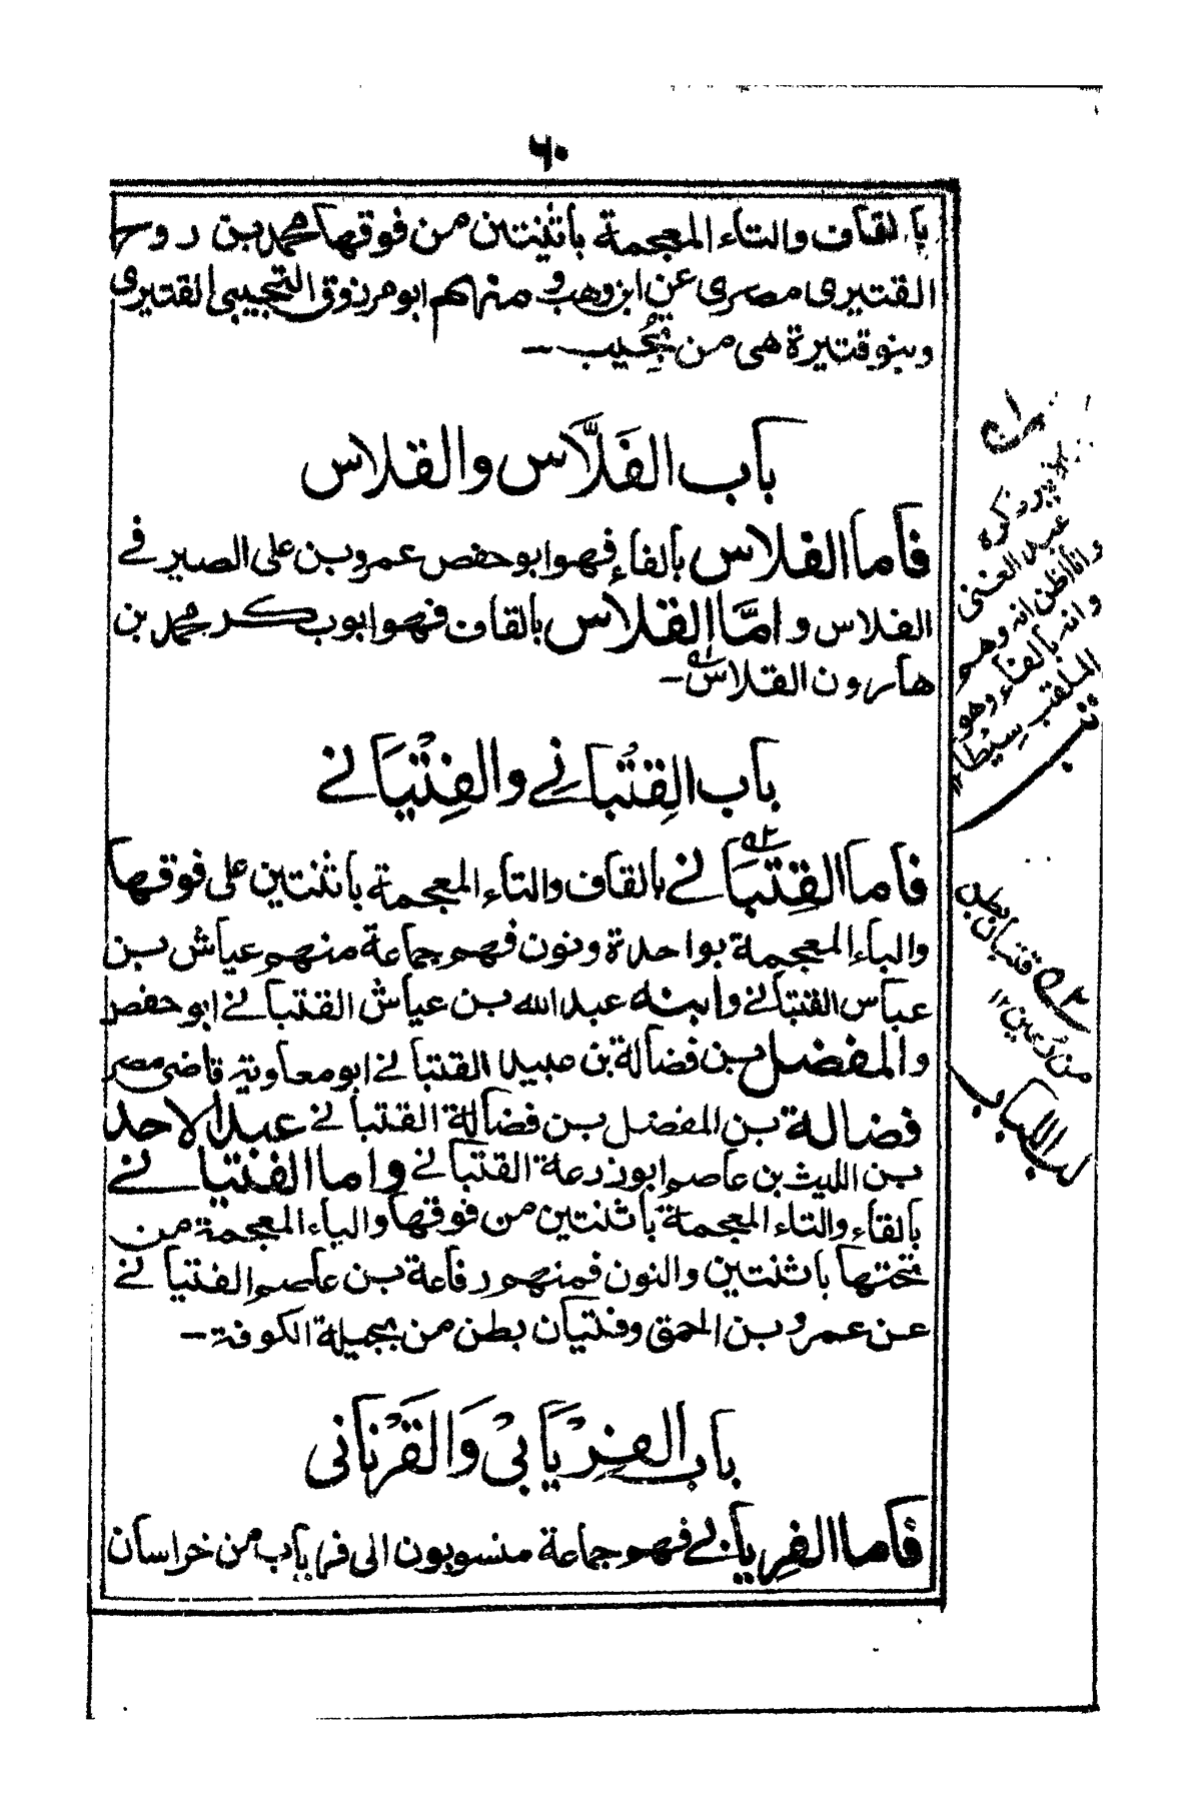 ٦٠
بالقاف والتاء المعجمة باثنتين من فوقها محمد بن روح
القتيرى مصرى عن ابن وهب و منهم ابو مرزوق التجيبى القتيرى
وبنو قتيرة هى من تُجِيب ــ
باب الفَلَّاس والقلاس
فاما الفلاس بالفاء فهو ابو حفص عمرو بن على الصيرفے
الفلاس و امَّا القلاس بالقاف فهو ابو بكر محمد بن
هارون القلاس ــ
باب القِتْبانے والفِتْيانے
فاما القِتْبَانے بالقاف والتاء المعجمة باثنتين على فوقها
والباء المعجمة بواحدة ونون فهم جماعة منهم عياش بن
عباس القتبانے وابنه عبد الله بن عياش القتبانے ابو حفص
والمفضل بن فضالة بن عبيد القتبانے ابو معاوية قاضى مصر
فضالة بن المفضل بن فضالة القتبانے عبد الاحد
بن الليث بن عاصم ابو زرعة القتبانے واما الفتيانے
بالفاء والتاء المعجمة باثنتين من فوقها والياء المعجمة من
تحتها باثنتين والنون فمنهم رفاعة بن عاصم الفتيانے
عن عمرو بن الحمق وفتيان بطن من بجيلة الكوفة ــ
باب الفِرْيَابىْ وَالقَرْنَانى
فاما الفِريابے فهم جماعة منسوبون الى فرياب من خراسان
وذكره
عبد الغنى
وانا اظن انه وهم
وانه بالفاء وهو
الملقب بسيطا ١٢
قتبان بطن
من رعين ١٢
لب اللباب